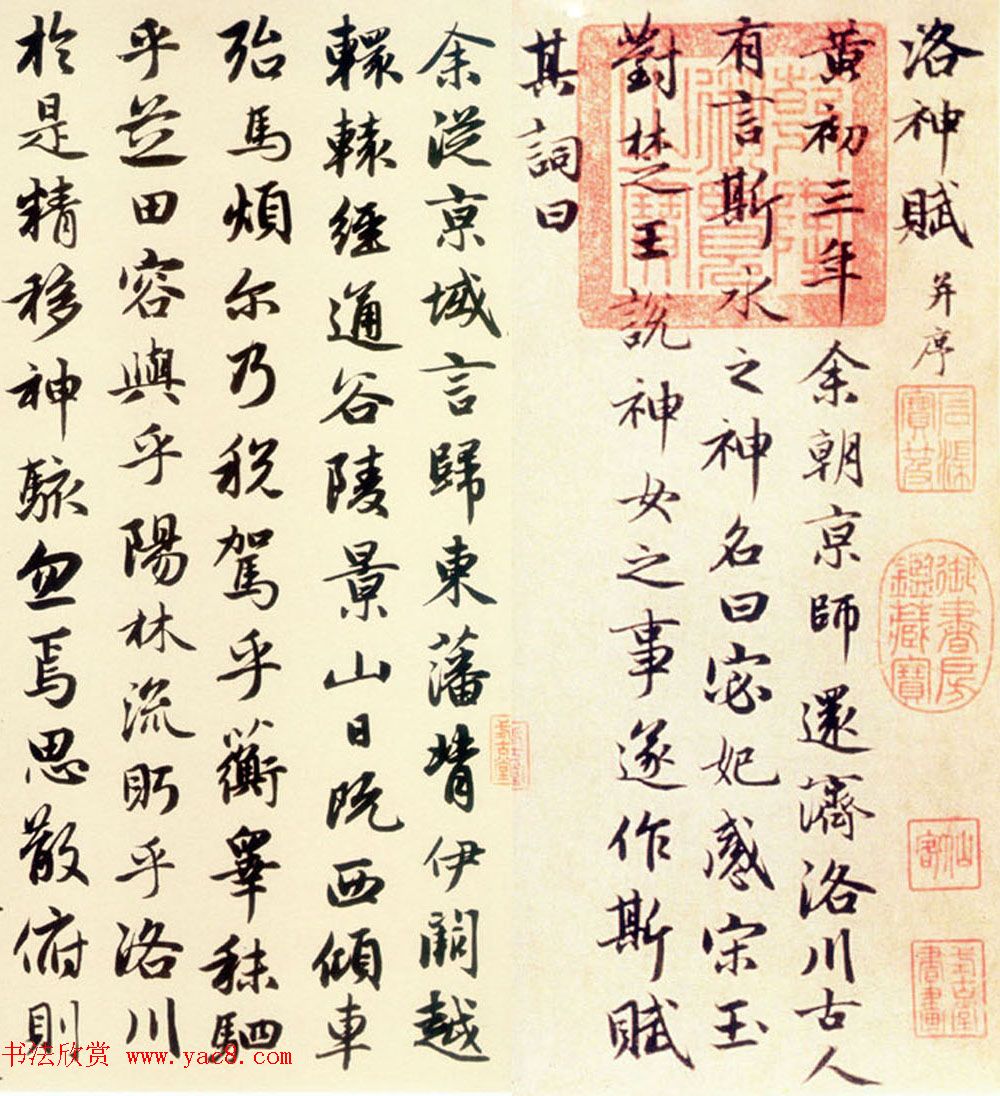 洛神賦 并序
黃初三年余朝京師還濟洛川古人
有言斯水之神名曰宓妃感宋玉
對楚王說神女之事遂作斯賦
其詞曰
余從京域言歸東藩背伊闕越
轘轅經通谷陵景山日既西傾車
殆馬煩尔乃税駕乎蘅皋秣駟
乎芝田容與乎陽林流眄乎洛川
於是精移神駭忽焉思散俯則
御書房鑑藏寶
书法欣赏 www.yac8.com